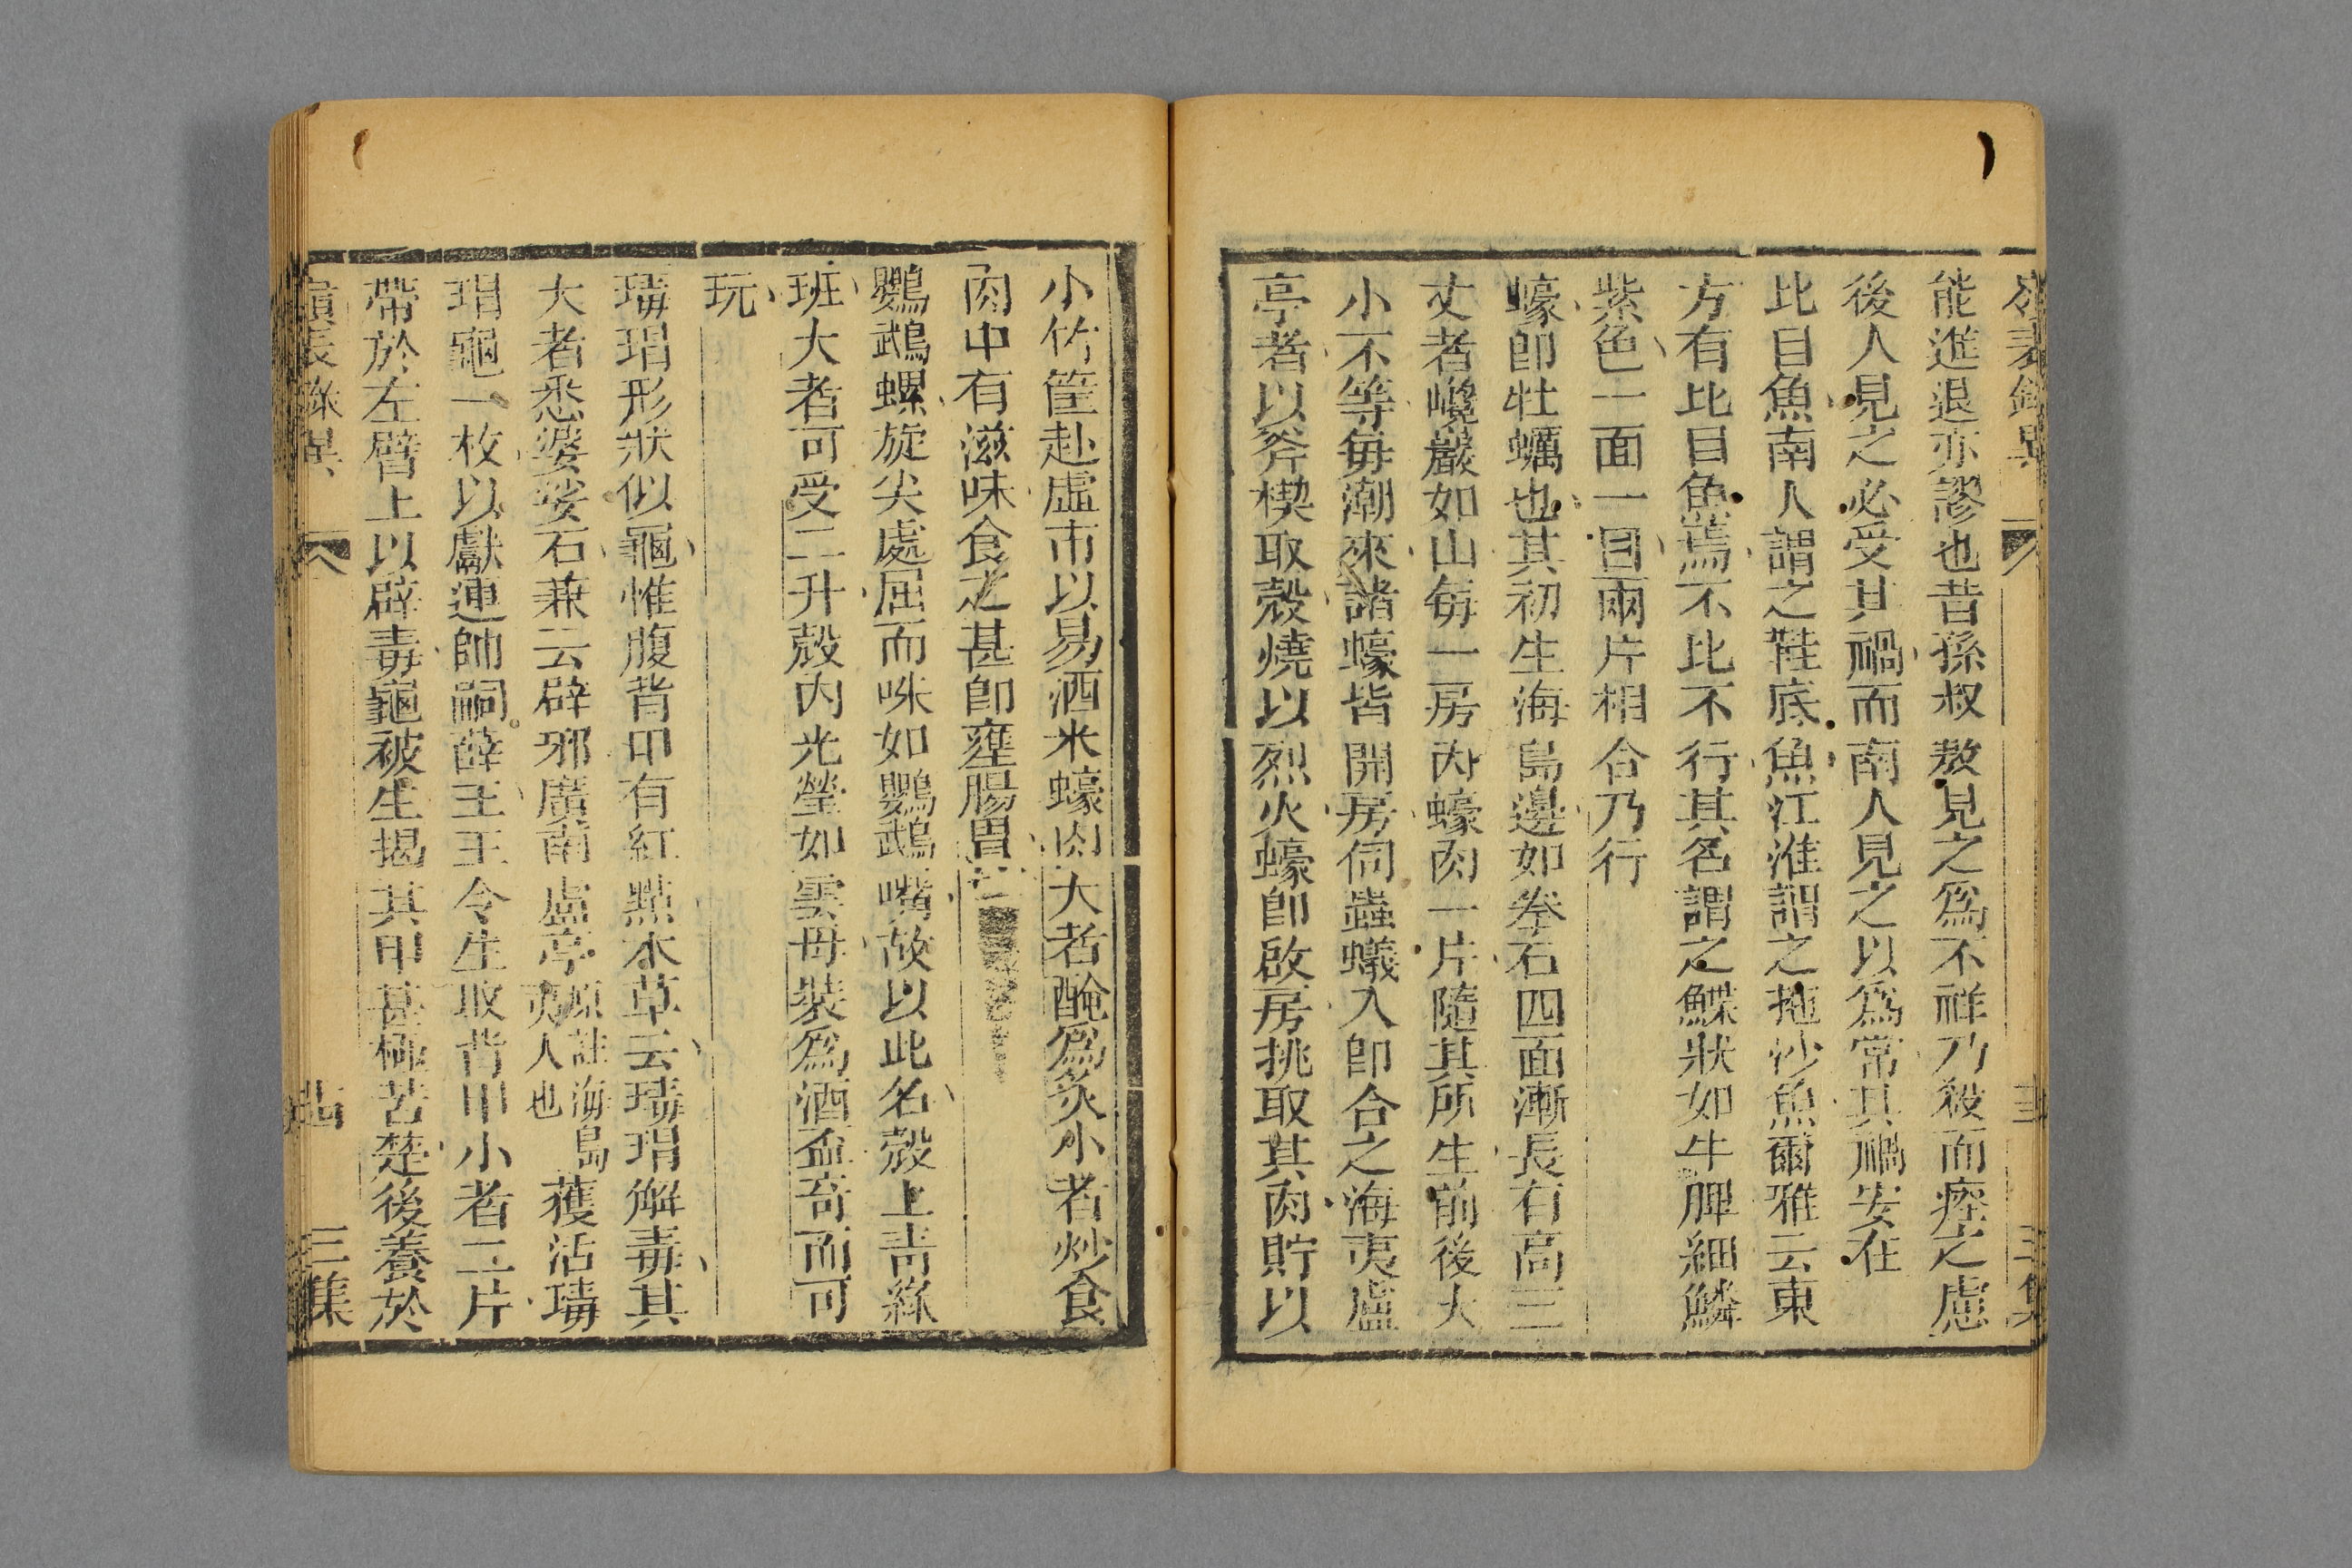 嶺表錄異
三集
能進退亦謬也昔孫叔敖見之爲不祥乃殺而瘞之慮
後人見之必受其禍而南人見之以爲常其禍安在
比目魚南人謂之鞋底魚江淮謂之拖沙魚爾雅云東
方有比目魚焉不比不行其名謂之鰈狀如牛脾細鱗
紫色一面一目兩片相合乃行
蠔卽牡蠣也其初生海島邊如拳石四面漸長有高三
丈者巉巖如山每一房內蠔肉一片隨其所生前後大
小不等每潮來諸蠔皆開房伺蟲蟻入卽合之海夷盧
亭者以斧楔取殼燒以烈火蠔卽啟房挑取其肉貯以
小竹筐赴虛市以易酒米蠔肉大者醃爲炙小者炒食
肉中有滋味食之甚卽壅腸胃
鸚鵡螺旋尖處屈而咮如鸚鵡嘴故以此名殼上靑綠
班大者可受二升殼內光瑩如雲母裝爲酒盃奇而可
玩
瑇瑁形狀似龜惟腹背甲有紅點本草云瑇瑁解毒其
大者悉婆娑石兼云辟邪廣南盧亭原註海島夷人也獲活瑇
瑁龜一枚以獻連帥嗣薛王王令生取背甲小者二片
帶於左臂上以辟毒龜被生揭其甲甚極苦楚後養於
嶺表錄異
古
三集